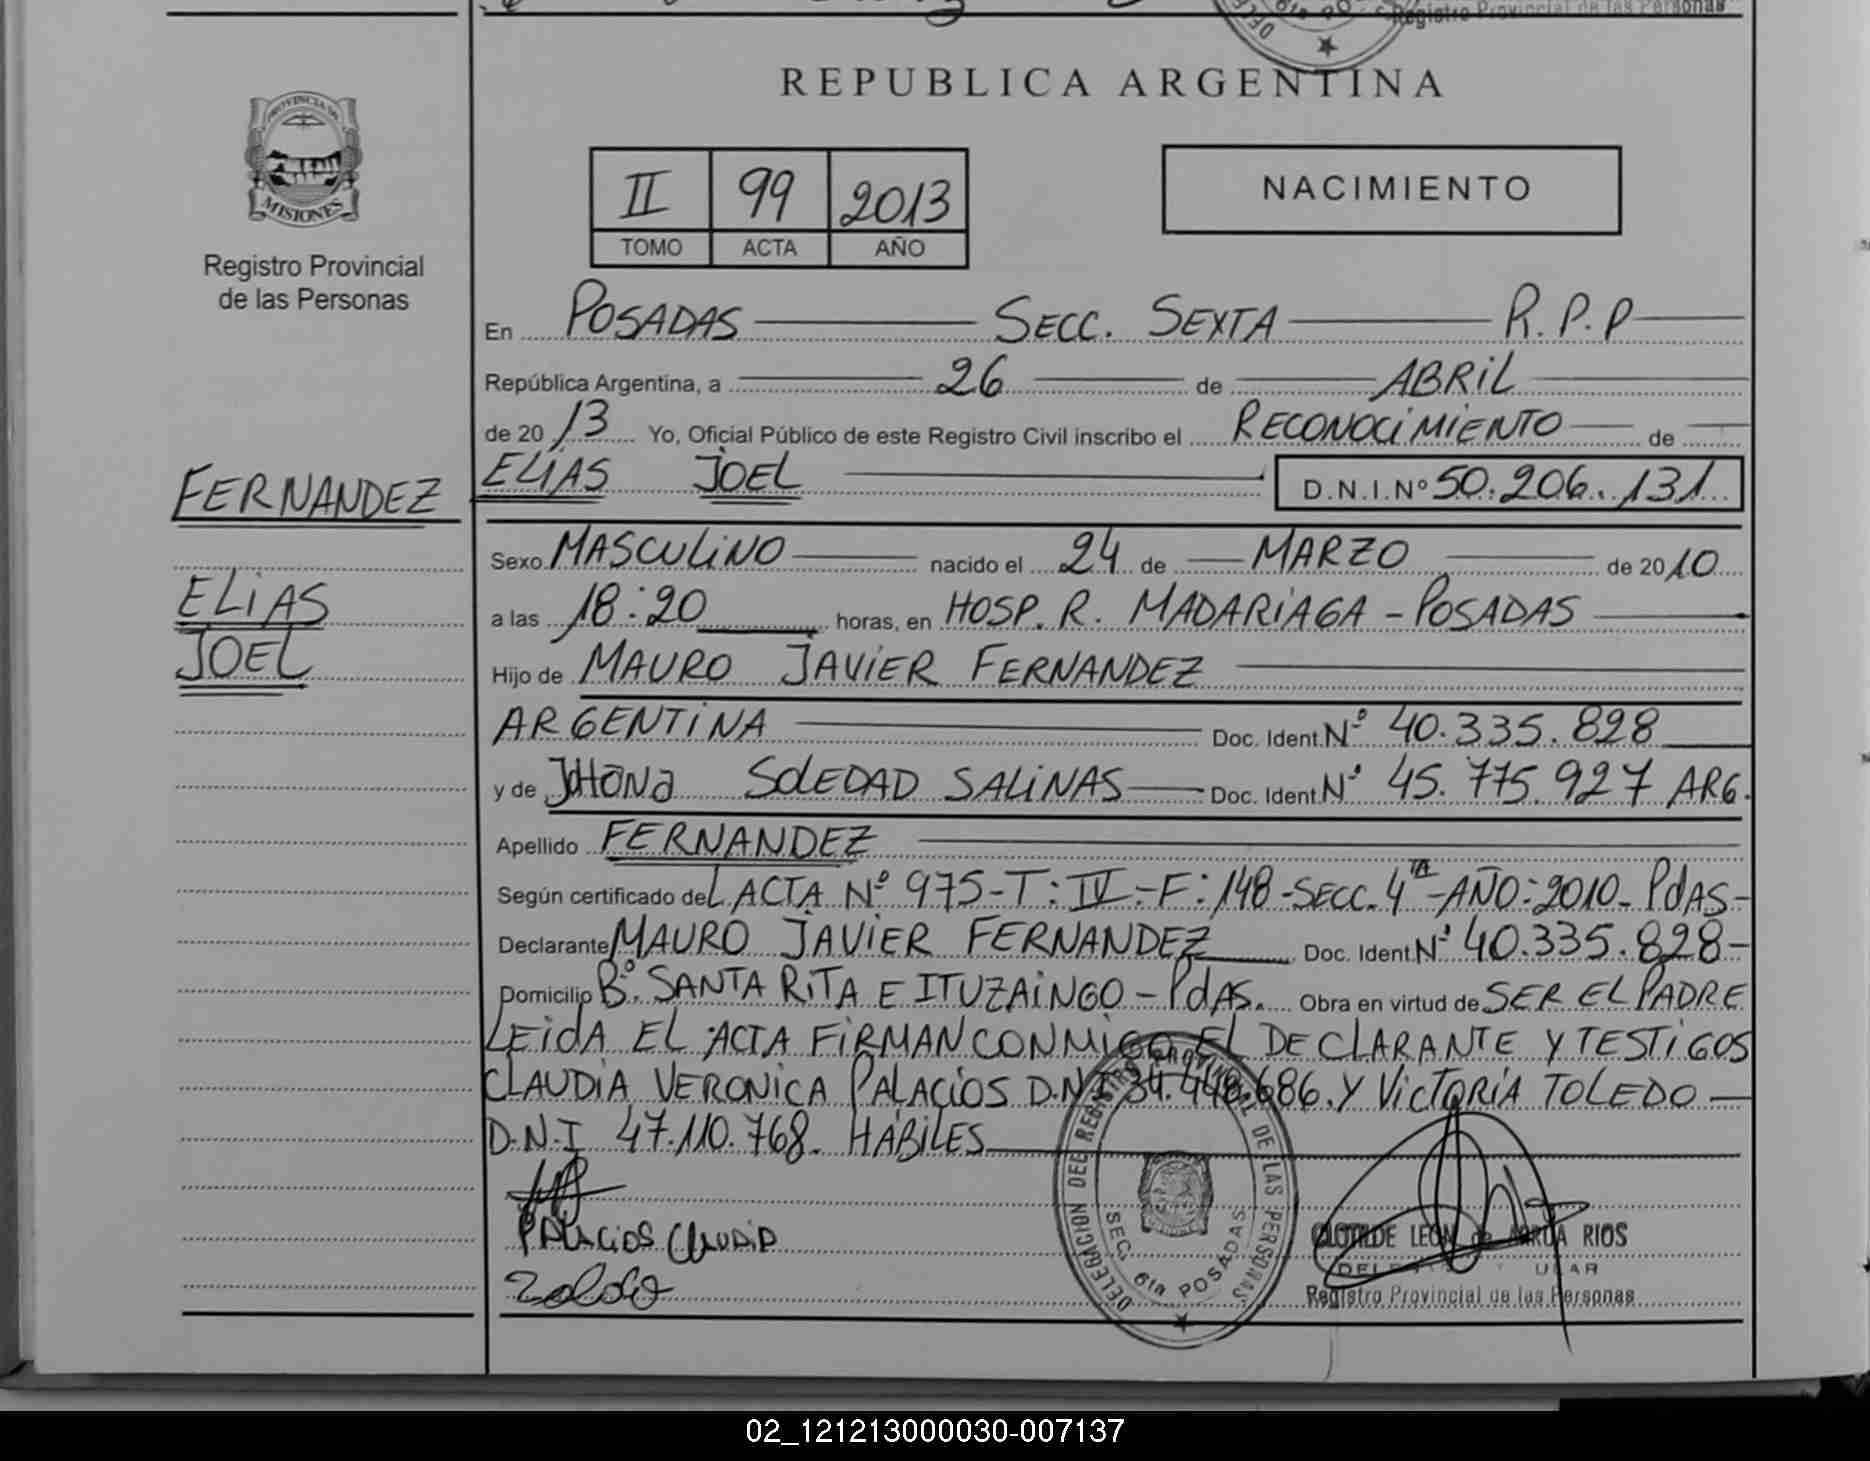 Registro Provincial de las Personas
REPUBLICA ARGENTINA
PROVINCIA DE
MISIONES
Registro Provincial
de las Personas
II 99 2013
TOMO ACTA AÑO
NACIMIENTO
En POSADAS SECC. SEXTA R.P.P
República Argentina, a 26 de ABRIL
de 2013 Yo, Oficial Público de este Registro Civil inscribo el RECONOCIMIENTO de
FERNANDEZ ELIAS JOEL D.N.I.Nº 50.206.131
Sexo MASCULINO nacido el 24 de MARZO de 2010
ELIAS
a las 18:20 horas, en HOSP. R. MADARIAGA - POSADAS
JOEL
Hijo de MAURO JAVIER FERNANDEZ
ARGENTINA Doc. Ident. Nº 40.335.828
y de JOHANA SOLEDAD SALINAS Doc. Ident. Nº 45.775.927 ARG.
Apellido FERNANDEZ
Según certificado del ACTA Nº 975-T: IV-F: 148-SECC. 4TA-AÑO: 2010- PdAS-
Declarante MAURO JAVIER FERNANDEZ Doc. Ident. Nº 40.335.828-
Domicilio Bº. SANTA RITA E ITUZAINGO - PdAS. Obra en virtud de SER EL PADRE
LEIDA EL ACTA FIRMAN CONMIGO EL DECLARANTE Y TESTIGOS
CLAUDIA VERONICA PALACIOS D.N.I 34.448.686. Y VICTORIA TOLEDO
D.N.I 47.110.768. HABILES
DELEGACION DEL REGISTRO PROVINCIAL DE LAS PERSONAS
SEC. 6ta POSADAS
PALACIOS CLAUDIA
CLOTILDE LEON de RIOS
Registro Provincial de las Personas
02_121213000030-007137